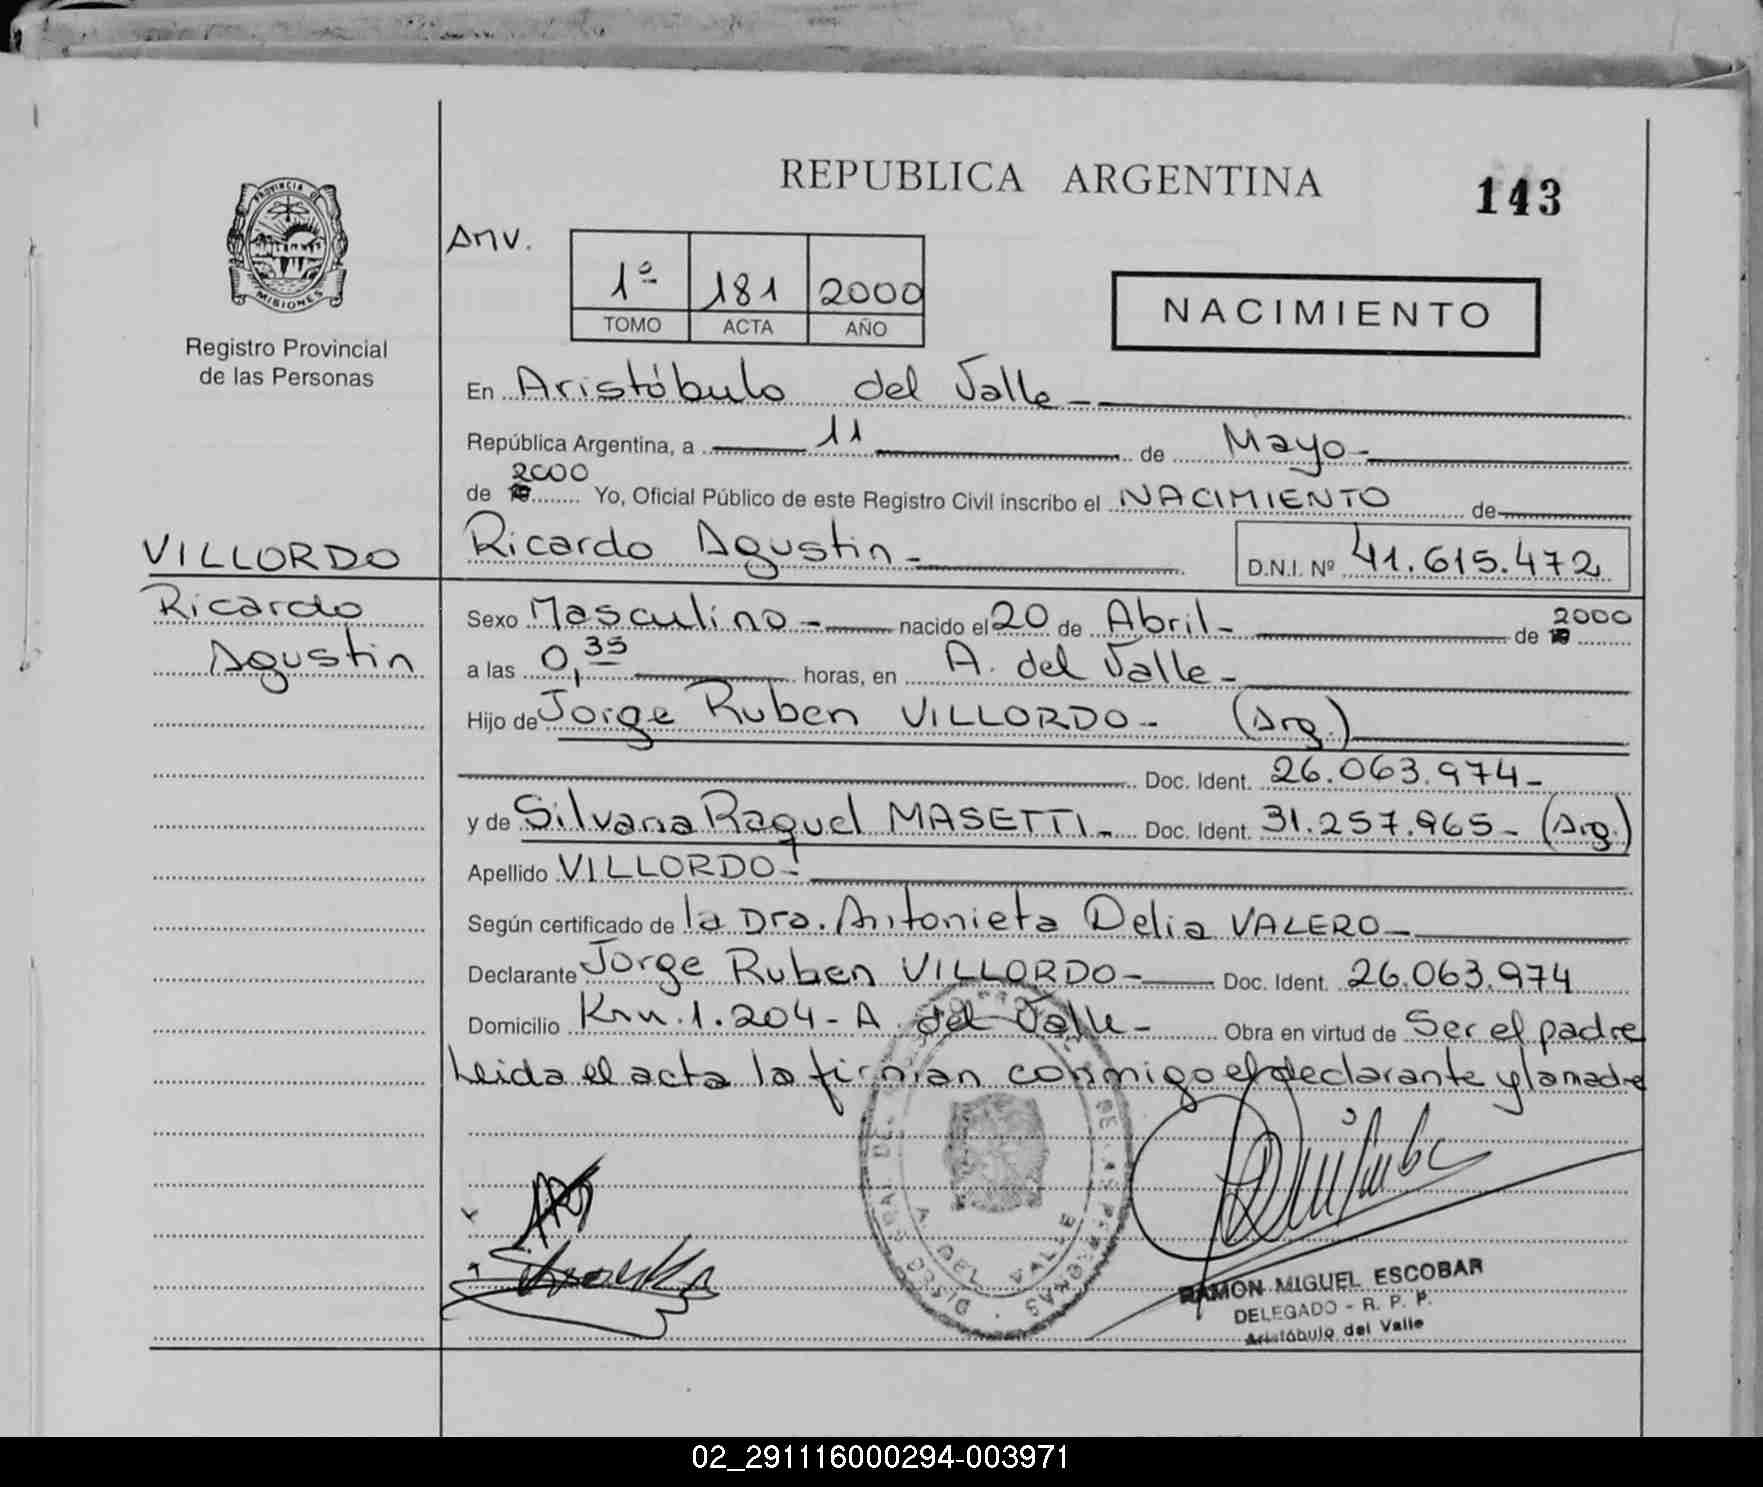 REPUBLICA ARGENTINA
143
PROVINCIA DE
MISIONES
Registro Provincial
de las Personas
Anv.
1º 181 2000
TOMO ACTA AÑO
NACIMIENTO
En Aristóbulo del Valle -
República Argentina, a 11 de Mayo -
de 2000 Yo, Oficial Público de este Registro Civil inscribo el NACIMIENTO de
Ricardo Agustin - D.N.I. Nº 41.615.472
VILLORDO
Ricardo
Agustin
Sexo Masculino - nacido el 20 de Abril - de 2000
a las 0,35 horas, en A. del Valle -
Hijo de Jorge Ruben VILLORDO - (Arg.)
Doc. Ident. 26.063.974 -
y de Silvana Raquel MASETTI - Doc. Ident. 31.257.965 - (Arg.)
Apellido VILLORDO -
Según certificado de la Dra. Antonieta Delia VALERO -
Declarante Jorge Ruben VILLORDO - Doc. Ident. 26.063.974
Domicilio Km. 1.204 - A. del Valle - Obra en virtud de Ser el padre
Leida el acta la firman conmigo el declarante y la madre
DE LAS PERSONAS
A. DEL VALLE
RAMON MIGUEL ESCOBAR
DELEGADO - R. P. P.
Aristóbulo del Valle
02_291116000294-003971